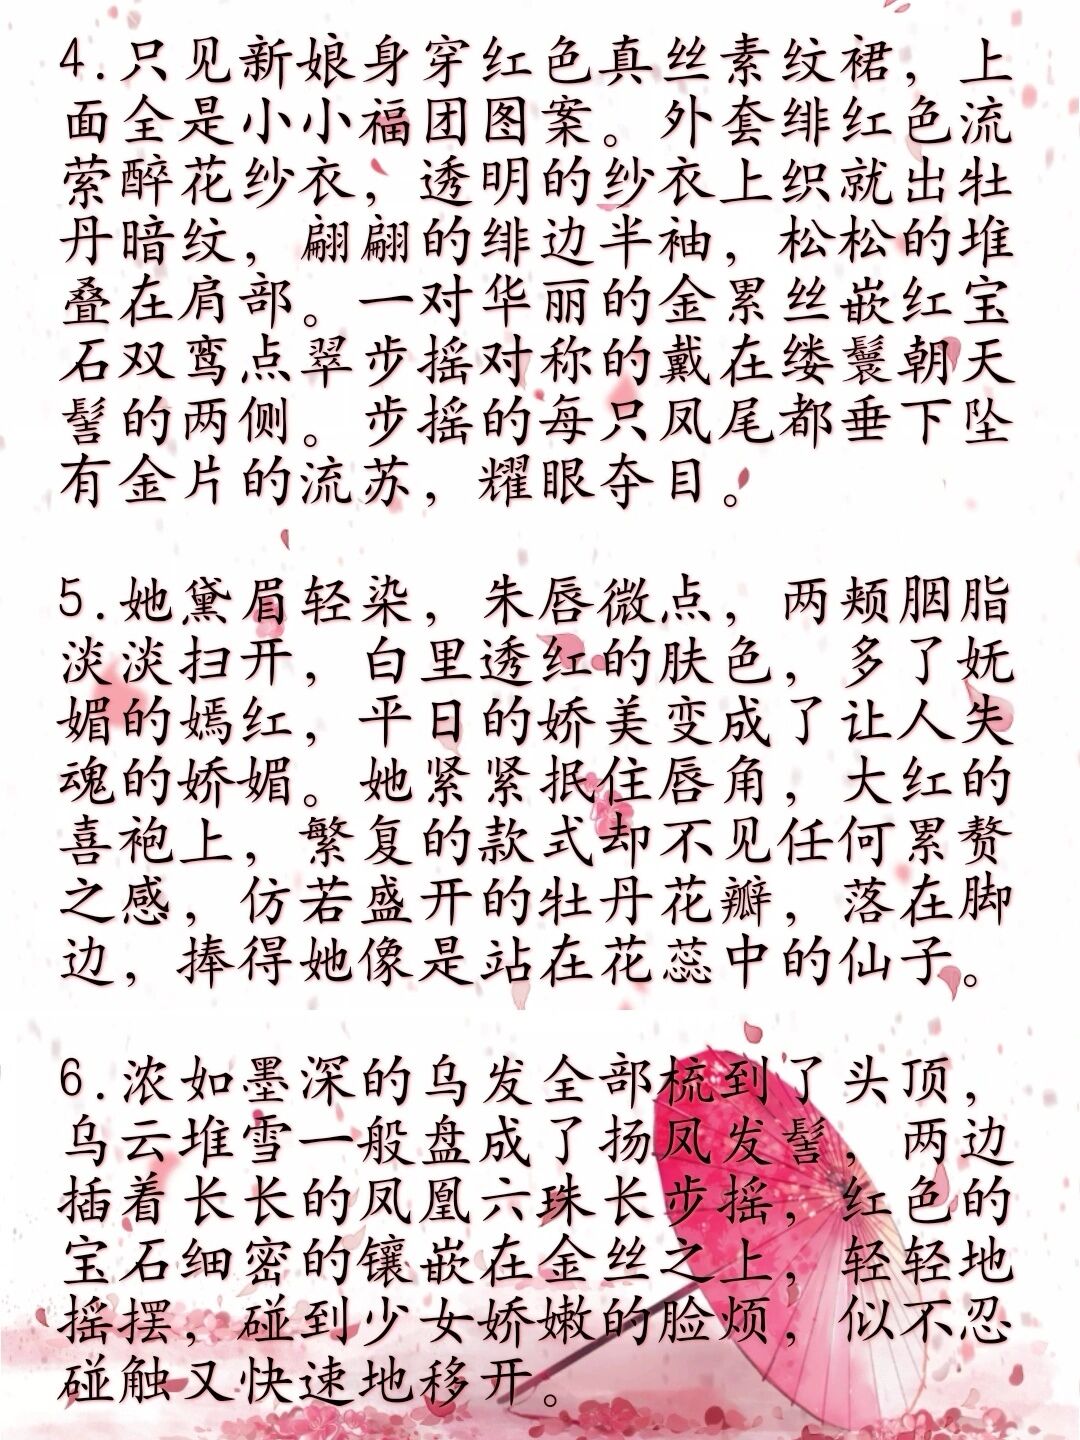 4.只见新娘身穿红色真丝素纹裙，上
面全是小小福团图案。外套绯红色流
萦醉花纱衣，透明的纱衣上织就出牡
丹暗纹，翩翩的绯边半袖，松松的堆
叠在肩部。一对华丽的金累丝嵌红宝
石双鸾点翠步摇对称的戴在缕鬟朝天
髻的两侧。步摇的每只凤尾都垂下坠
有金片的流苏，耀眼夺目。
5.她黛眉轻染，朱唇微点，两颊胭脂
淡淡扫开，白里透红的肤色，多了妩
媚的嫣红，平日的娇美变成了让人失
魂的娇媚。她紧紧抿住唇角，大红的
喜袍上，繁复的款式却不见任何累赘
之感，仿若盛开的牡丹花瓣，落在脚
边，捧得她像是站在花蕊中的仙子。
6.浓如墨深的乌发全部梳到了头顶，
乌云堆雪一般盘成了扬凤发髻，两边
插着长长的凤凰六珠长步摇，红色的
宝石细密的镶嵌在金丝之上，轻轻地
摇摆，碰到少女娇嫩的脸烦，似不忍
碰触又快速地移开。